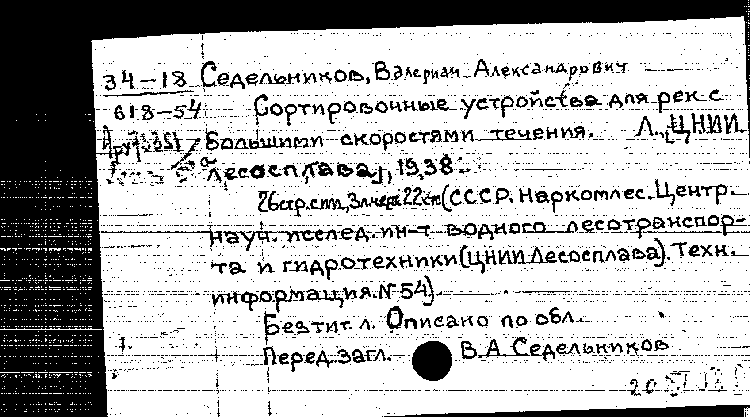 34-18 Седельников, Валериан Александрович
618-54 Сортировочные устройства для рек с
большими скоростями течения. Л., [ЦНИИ
лесосплава], 1938.
26 стр. с пл., 3 л. черт. 22 см (СССР. Наркомлес. Центр.
науч. исслед. ин-т водного лесотранспор-
та и гидротехники (ЦНИИ Лесосплава). Техн.
информация. № 54).
Без тит. л. Описано по обл.
Перед загл. В. А. Седельников